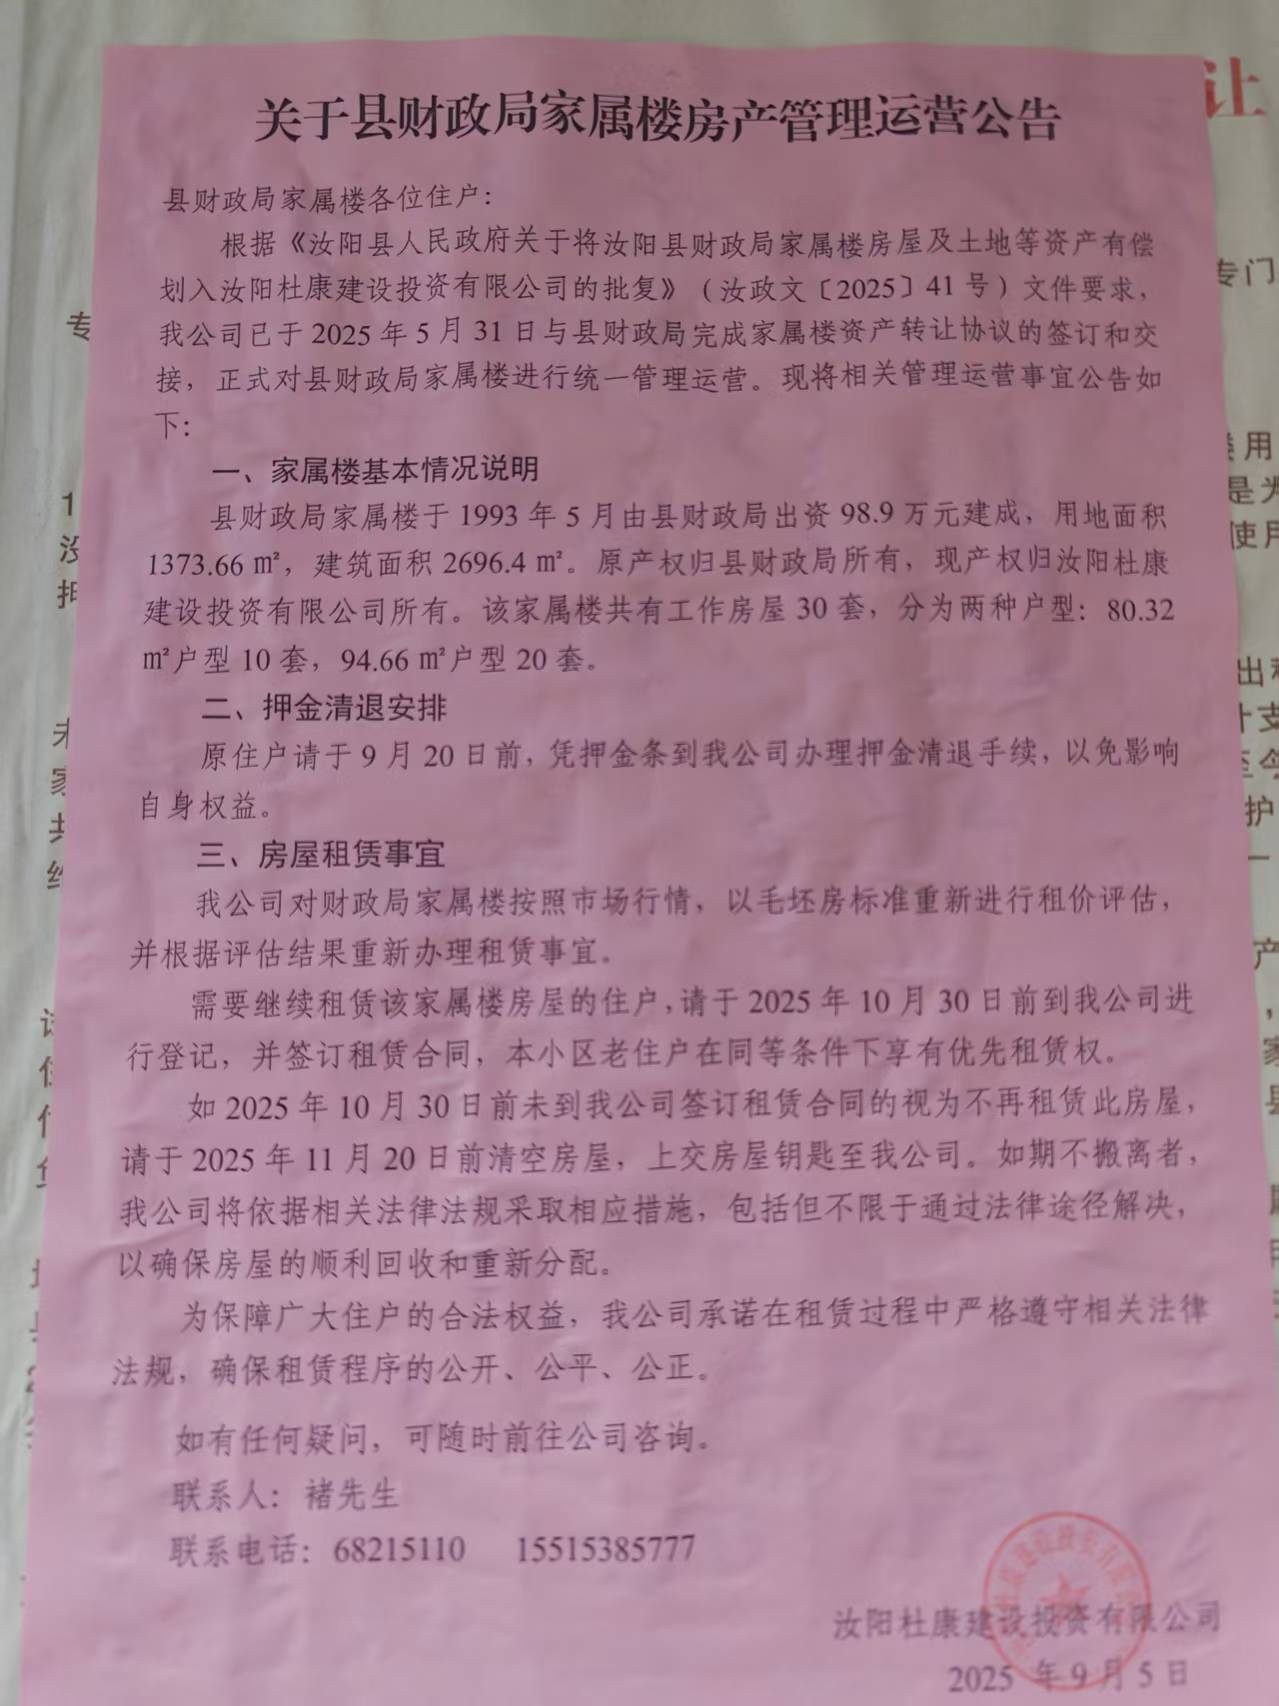 关于县财政局家属楼房产管理运营公告
县财政局家属楼各位住户：
根据《汝阳县人民政府关于将汝阳县财政局家属楼房屋及土地等资产有偿
划入汝阳杜康建设投资有限公司的批复》（汝政文〔2025〕41号）文件要求，
我公司已于2025年5月31日与县财政局完成家属楼资产转让协议的签订和交
接，正式对县财政局家属楼进行统一管理运营。现将相关管理运营事宜公告如
下：
一、家属楼基本情况说明
县财政局家属楼于1993年5月由县财政局出资98.9万元建成，用地面积
1373.66㎡，建筑面积2696.4㎡。原产权归县财政局所有，现产权归汝阳杜康
建设投资有限公司所有。该家属楼共有工作房屋30套，分为两种户型：80.32
㎡户型10套，94.66㎡户型20套。
二、押金清退安排
原住户请于9月20日前，凭押金条到我公司办理押金清退手续，以免影响
自身权益。
三、房屋租赁事宜
我公司对财政局家属楼按照市场行情，以毛坯房标准重新进行租价评估，
并根据评估结果重新办理租赁事宜。
需要继续租赁该家属楼房屋的住户，请于2025年10月30日前到我公司进
行登记，并签订租赁合同，本小区老住户在同等条件下享有优先租赁权。
如2025年10月30日前未到我公司签订租赁合同的视为不再租赁此房屋，
请于2025年11月20日前清空房屋，上交房屋钥匙至我公司。如期不搬离者，
我公司将依据相关法律法规采取相应措施，包括但不限于通过法律途径解决，
以确保房屋的顺利回收和重新分配。
为保障广大住户的合法权益，我公司承诺在租赁过程中严格遵守相关法律
法规，确保租赁程序的公开、公平、公正。
如有任何疑问，可随时前往公司咨询。
联系人：褚先生
联系电话：68215110 15515385777
汝阳杜康建设投资有限公司
2025年9月5日
让
专门
专